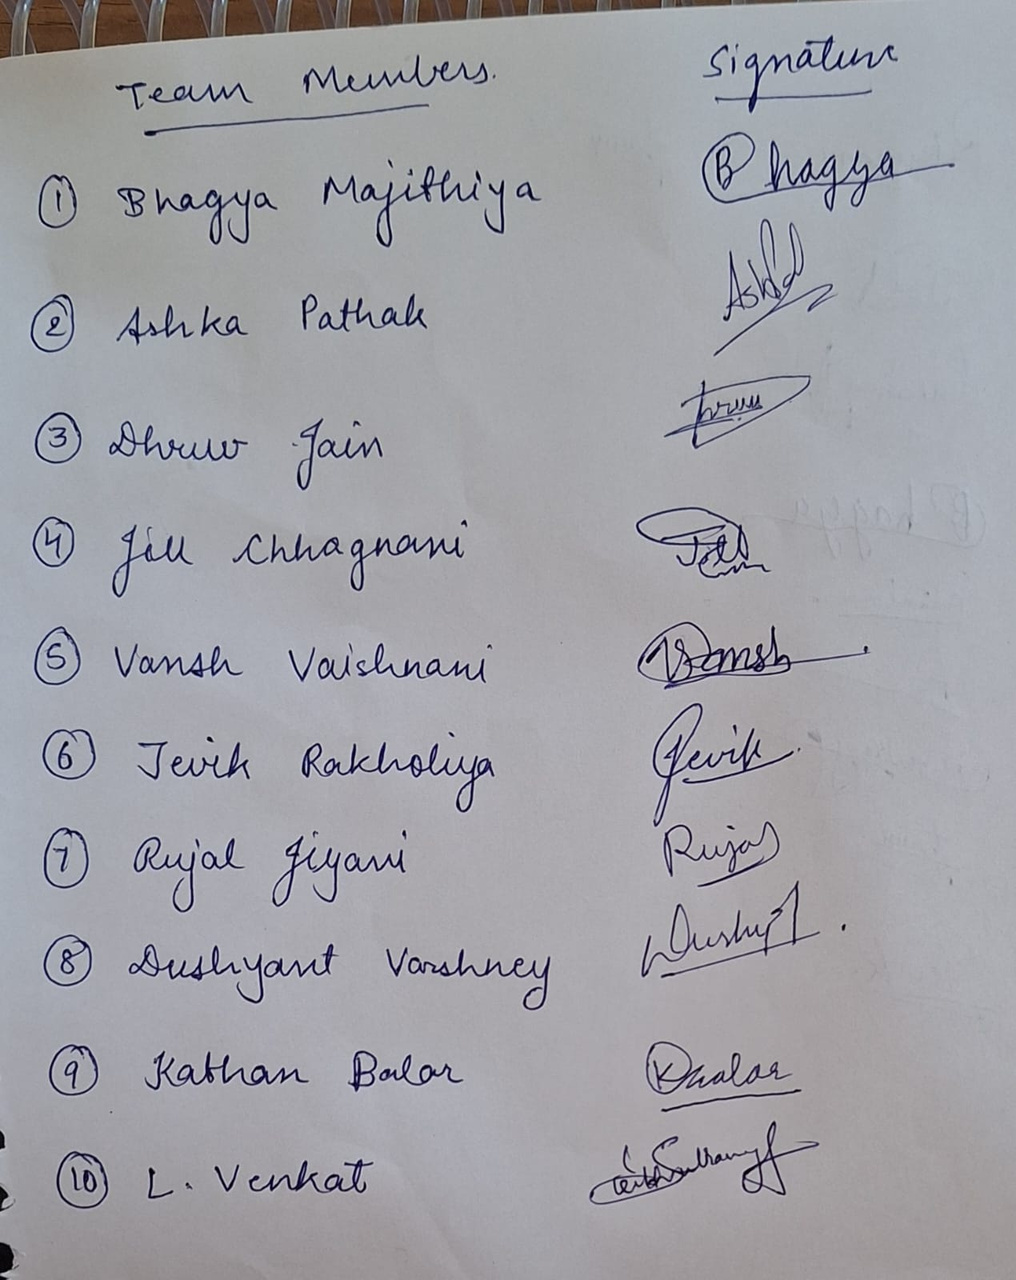 Team Members. Signature
① Bhagya Majithiya Bhagya
② Ashka Pathak
③ Dhruv Jain
④ Jill Chhagnani
⑤ Vansh Vaishnani Vansh
⑥ Jevik Rakholiya Jevik
⑦ Rujal Jiyani Rujal
⑧ Dushyant Varshney
⑨ Kathan Balar
⑩ L. Venkat